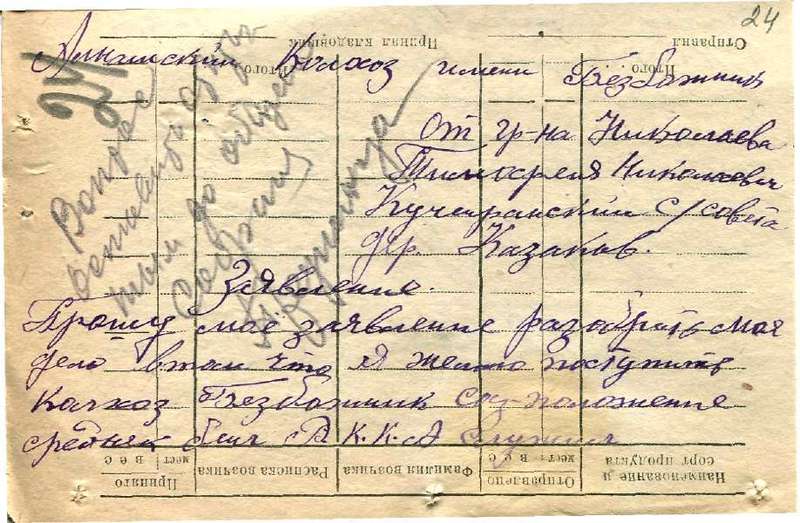 24
Отправил
Принял кладовщик
Итого
Итого
Алнашский Колхоз имени Безбожник
от гр-на Николаева
Тимофея Николаевич
Кучеранский с/совета
дер. Казаков.
Заявление.
Прошу мое заявление разобрать мое
дело в том что я желаю поступить
колхоз Безбожник соц-положение
середняк был в Р.К.К.А служил
24
Вопрос
оставить откры
тым до общего
собрания
Наименование и сорт продукта
Отправлено
мест
Вес
Фамилия возчика
Расписка возчика
Принято
мест
Вес